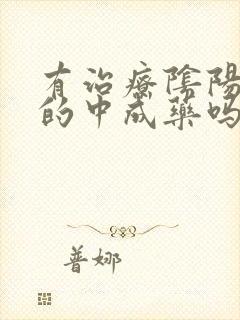 有治療陰陽
的中成藥吗
普娜